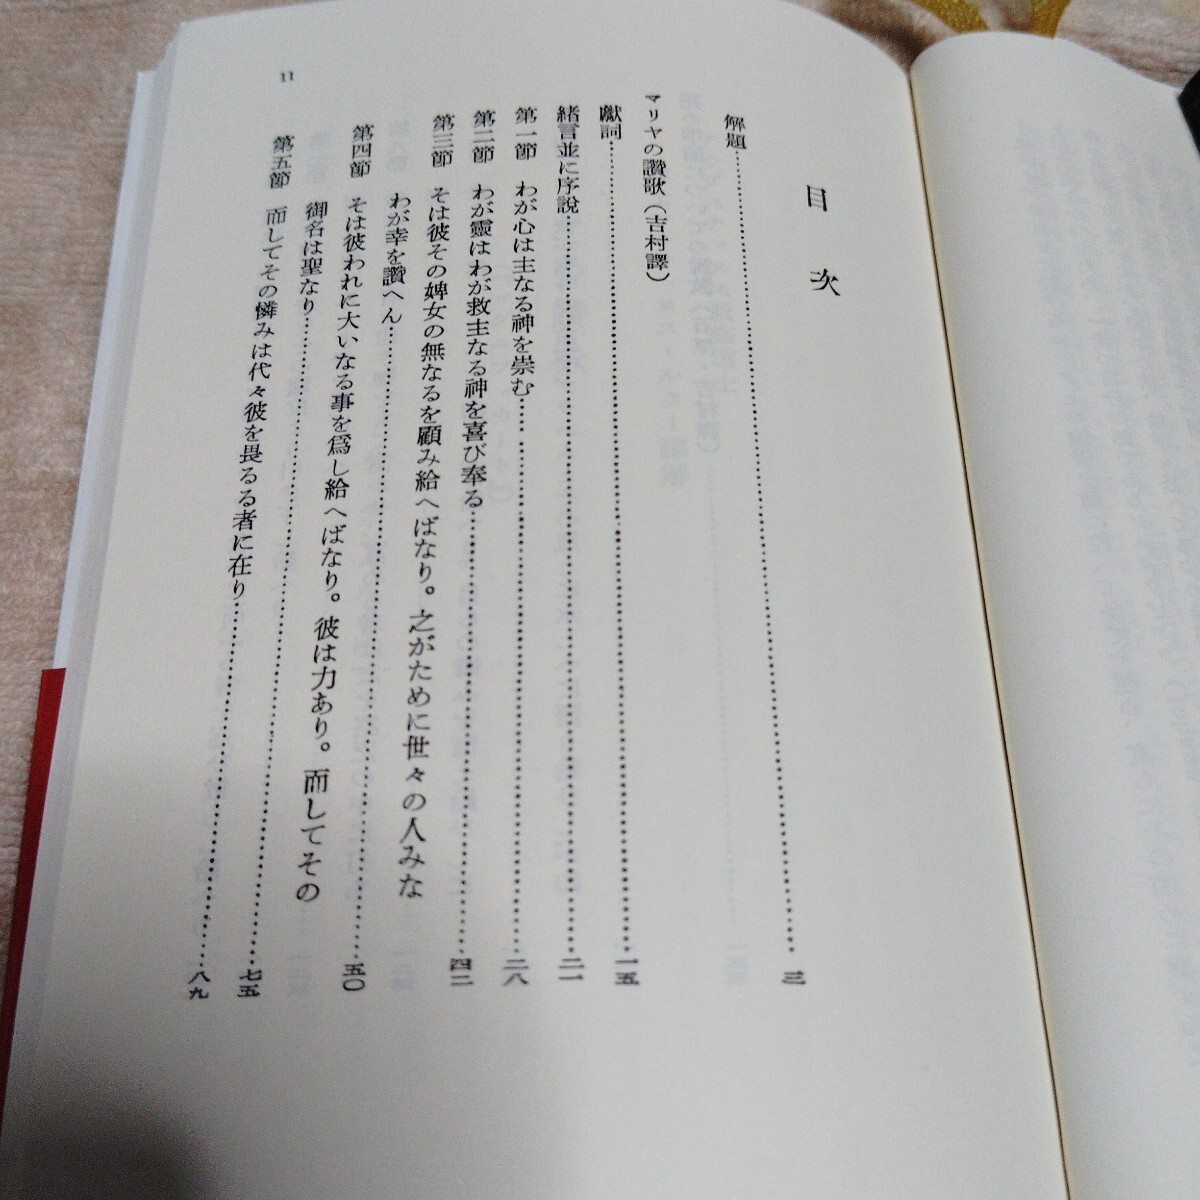 目次
解題……三
マリヤの讚歌（吉村譯）
獻詞……一五
緖言並に序説……二一
第一節 わが心は主なる神を崇む……二八
第二節 わが靈はわが救主なる神を喜び奉る……四二
第三節 そは彼その婢女の無なるを顧み給へばなり。之がために世々の人みな
わが幸を讚へん……五〇
第四節 そは彼われに大いなる事を爲し給へばなり。彼は力あり。而してその
御名は聖なり……七五
第五節 而してその憐みは代々彼を畏るる者に在り……八九
11